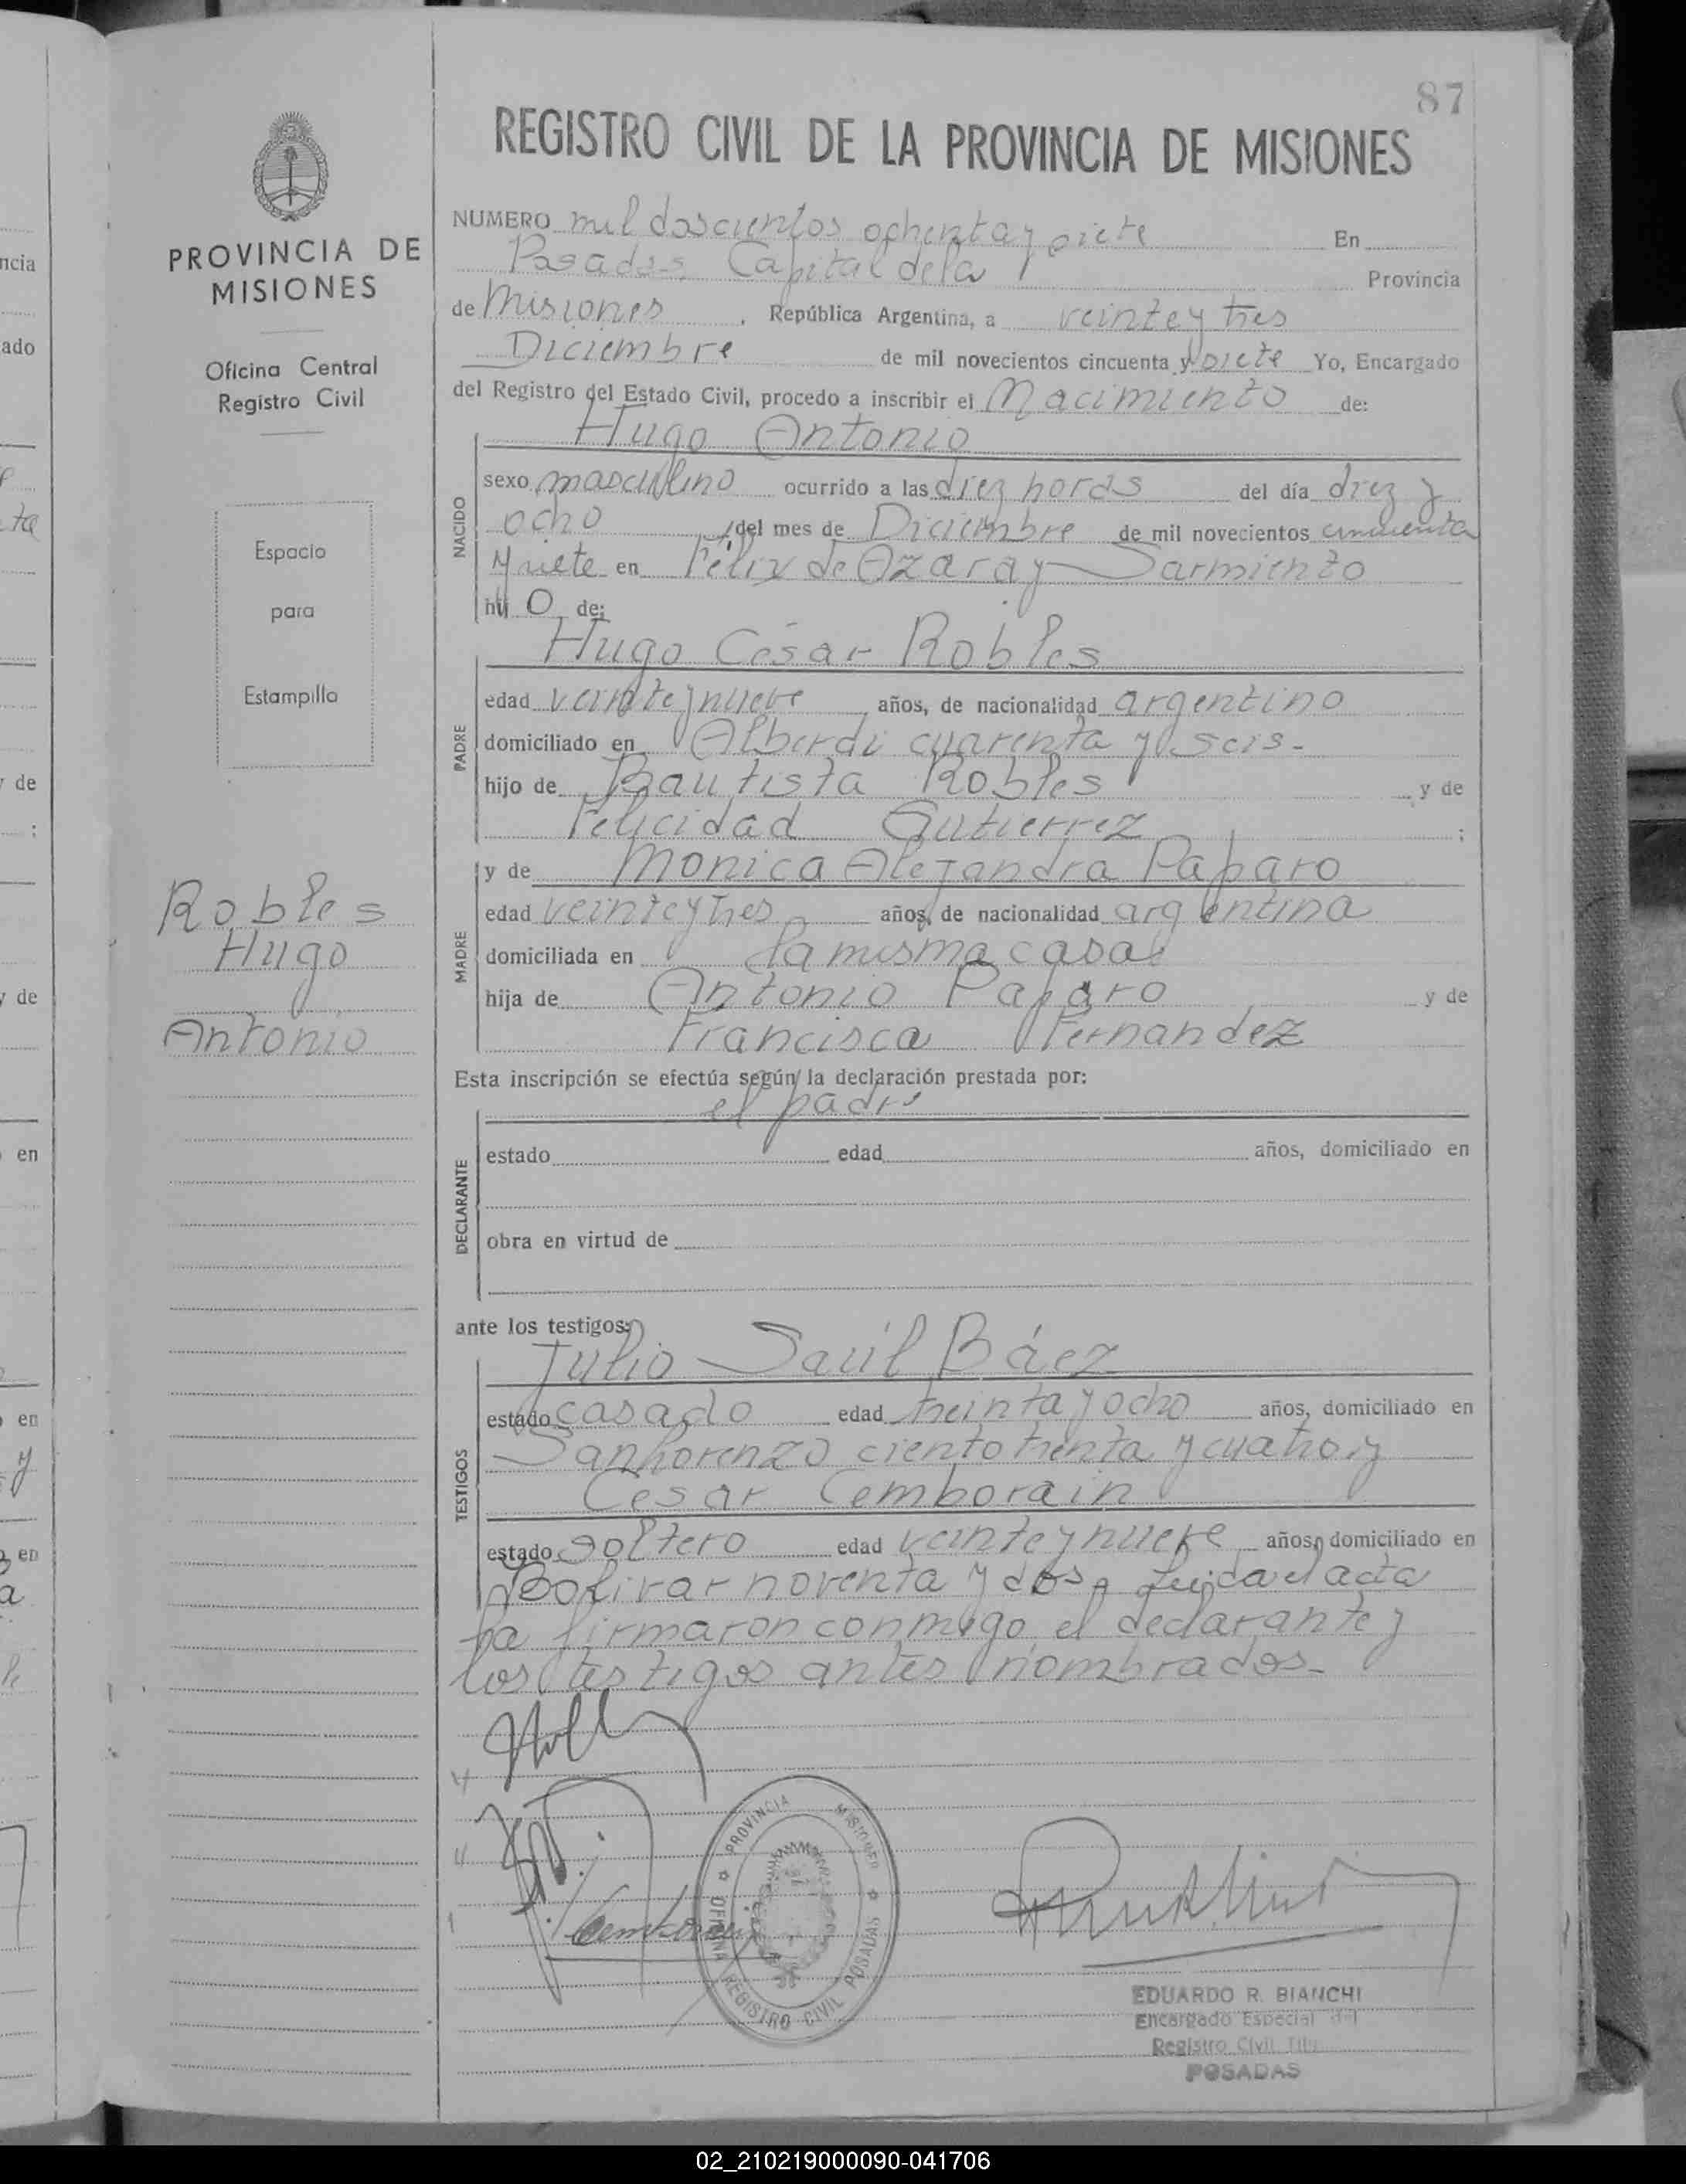 87
REGISTRO CIVIL DE LA PROVINCIA DE MISIONES
PROVINCIA DE
MISIONES
Oficina Central
Registro Civil
Espacio
para
Estampilla
Robles
Hugo
Antonio
NUMERO mil doscientos ochenta y siete En
Posadas, Capital de la Provincia
de Misiones, República Argentina, a veinte y tres
Diciembre de mil novecientos cincuenta y siete Yo, Encargado
del Registro del Estado Civil, procedo a inscribir el Nacimiento de:
Hugo Antonio
NACIDO
sexo masculino ocurrido a las diez horas del día diez y
ocho del mes de Diciembre de mil novecientos cincuenta
y siete en Félix de Azara y Sarmiento
hij o de:
Hugo César Robles
PADRE
edad veinte y nueve años, de nacionalidad argentino
domiciliado en Alberdi cuarenta y seis-
hijo de Bautista Robles y de
Felicidad Gutierrez ;
y de Monica Alejandra Paparo
MADRE
edad veinte y tres años, de nacionalidad argentina
domiciliada en la misma casa
hija de Antonio Paparo y de
Francisca Fernandez
Esta inscripción se efectúa según la declaración prestada por:
el padre
DECLARANTE
estado edad años, domiciliado en
obra en virtud de
ante los testigos:
Julio Saúl Báez
TESTIGOS
estado casado edad treinta y ocho años, domiciliado en
San Lorenzo ciento treinta y cuatro y
Cesar Cemborain
estado soltero edad veinte y nueve años, domiciliado en
Bolivar noventa y dos, Leida el acta
la firmaron conmigo, el declarante y
los testigos antes nombrados-
PROVINCIA MISIONES
OFICINA REGISTRO CIVIL POSADAS
EDUARDO R. BIANCHI
Encargado Especial del
Registro Civil
POSADAS
02_210219000090-041706